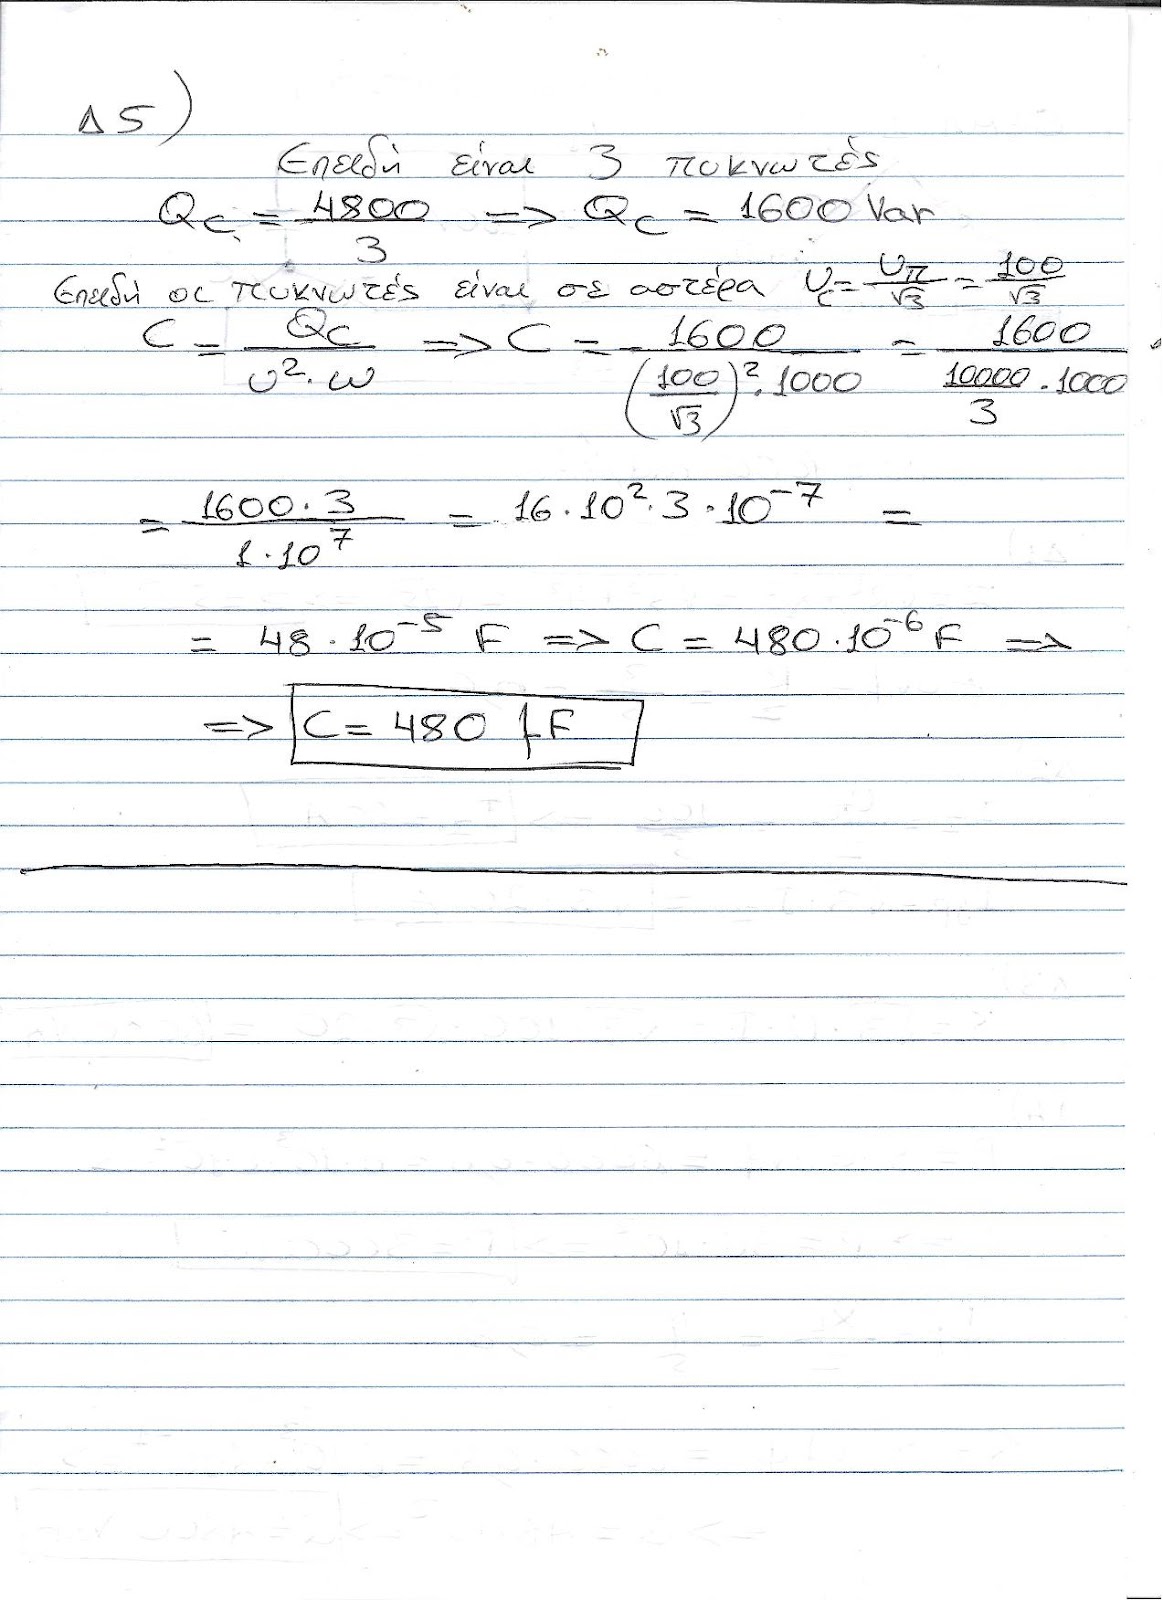 Δ5)
Επειδή είναι 3 πυκνωτές
Qc = 4800/3 => Qc = 1600 Var
Επειδή οι πυκνωτές είναι σε αστέρα Uc = Uπ/√3 = 100/√3
C = Qc/(U²·ω) => C = 1600/((100/√3)²·1000) = 1600/(10000/3·1000)
= 1600·3/(1·10⁷) = 16·10²·3·10⁻⁷ =
= 48·10⁻⁵ F => C = 480·10⁻⁶ F =>
=> C = 480 μF